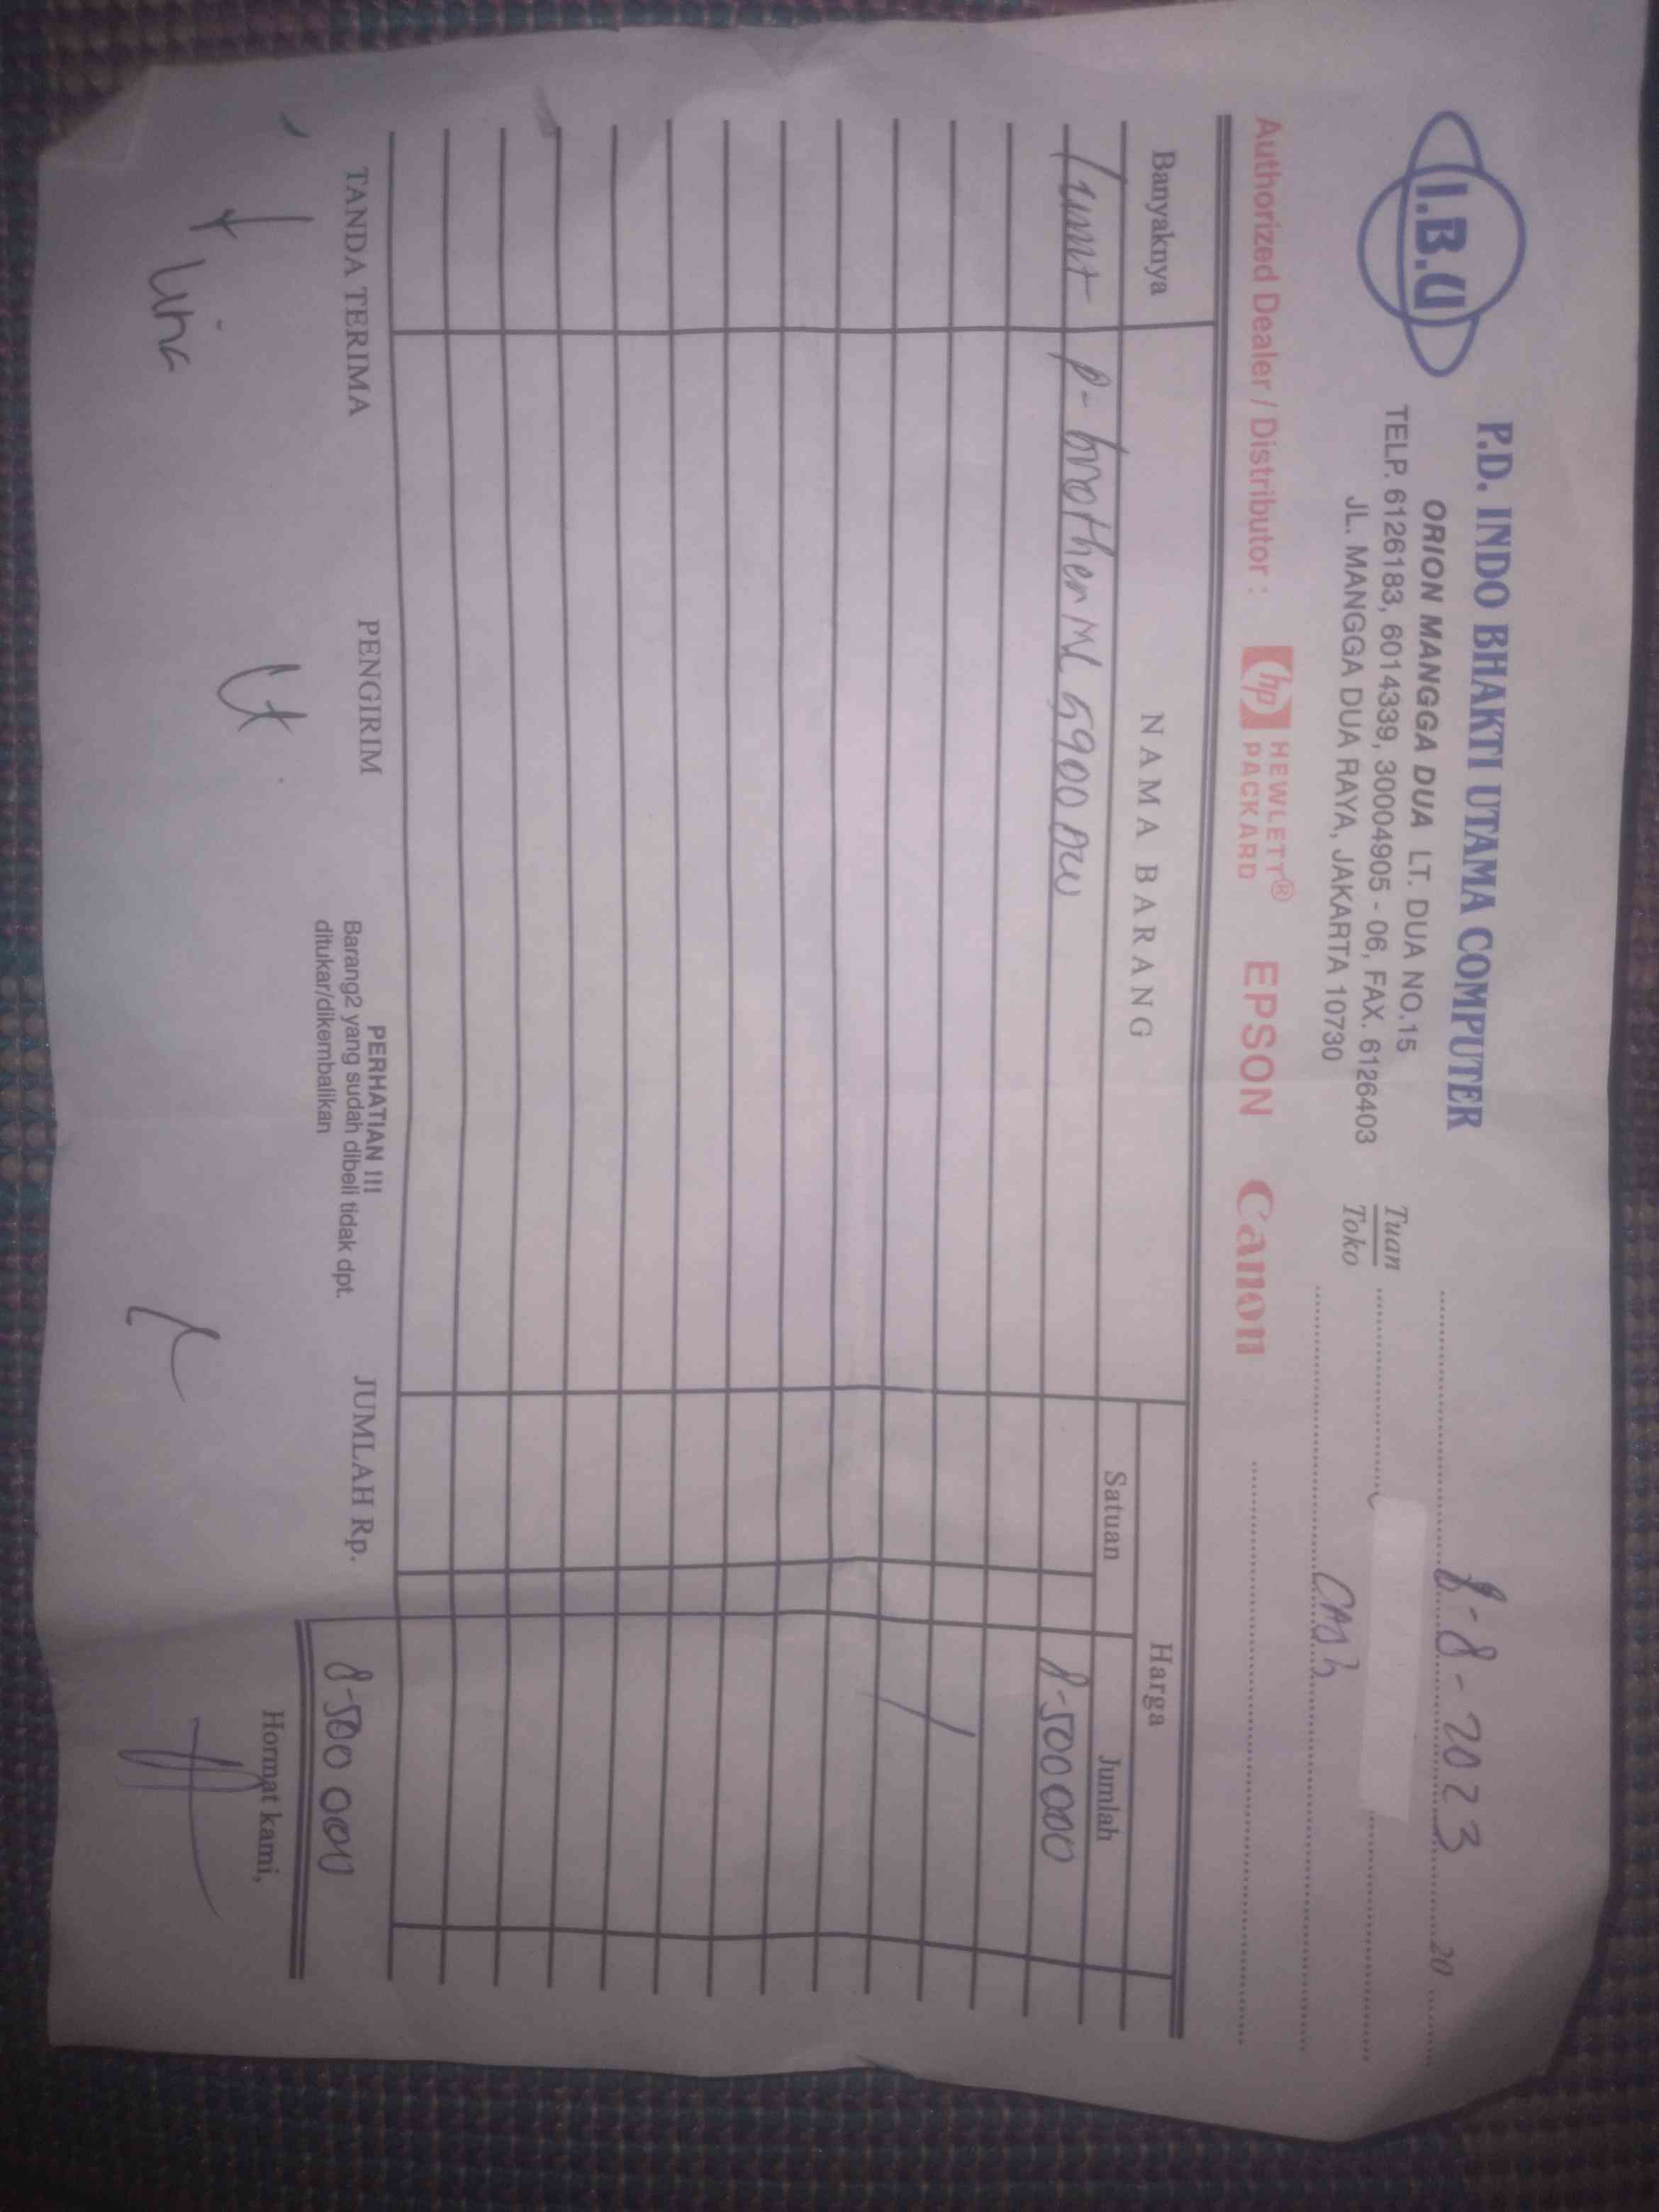 I.B.U
P.D. INDO BHAKTI UTAMA COMPUTER
ORION MANGGA DUA LT. DUA NO.15
TELP. 6126183, 6014339, 30004905 - 06, FAX. 6126403
JL. MANGGA DUA RAYA, JAKARTA 10730
8-8-2023 20
Tuan
Toko
Cash
Authorized Dealer / Distributor : hp HEWLETT® PACKARD EPSON Canon
Banyaknya NAMA BARANG Harga
Satuan Jumlah
1 unit p-brother 5900 DW 8-500 000
TANDA TERIMA PENGIRIM PERHATIAN !!! JUMLAH Rp. 8-500 000
Barang2 yang sudah dibeli tidak dpt.
ditukar/dikembalikan
Hormat kami,